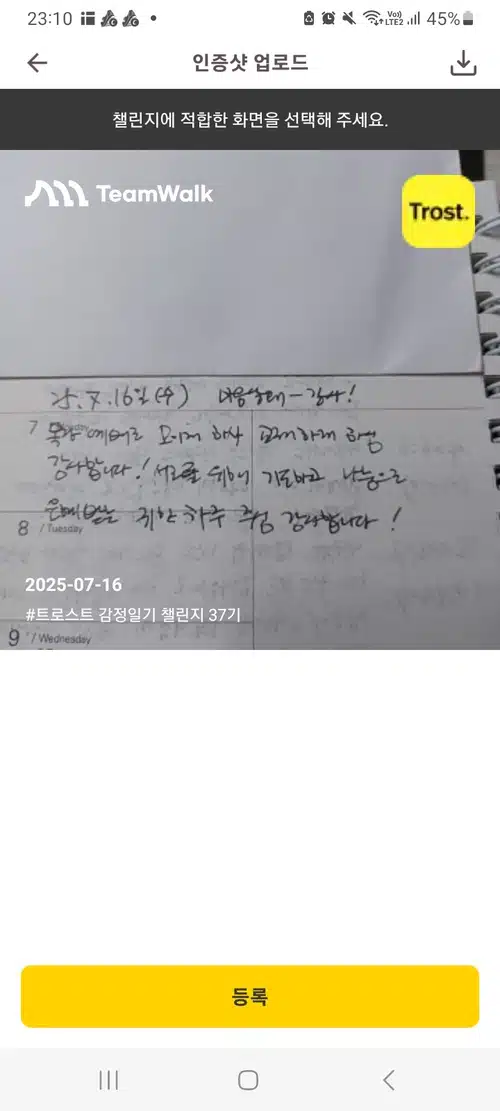 23:10
Vo))
LTE2
45%
인증샷 업로드
챌린지에 적합한 화면을 선택해 주세요.
TeamWalk
Trost.
25.7.16일(수) 마음상태-감사!
7 목장 예배로 모이게 하사 교제하게 하심
감사합니다! 서로를 위해 기도하고 나눔으로
8 / Tuesday
귀한 하루 주심 감사합니다!
2025-07-16
#트로스트 감정일기 챌린지 37기
9 / Wednesday
등록